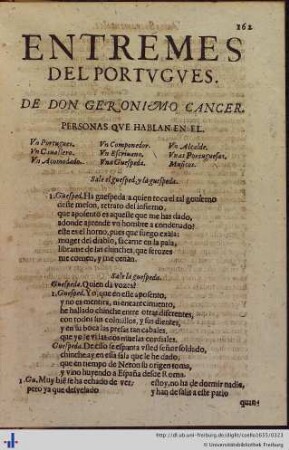 162
ENTREMES
DEL PORTVGVES.
DE DON GERONIMO CANCER.
PERSONAS QVE HABLAN EN EL.
Vn Portugues. Vn Componedor. Vn Alcalde.
Vn Cauallero. Vn Escriuano. Vnas Portuguesas.
Vn Acomodado. Vna Guespeda. Musicos.
Sale el guesped, y la guespeda.
1. Guesped. Ha guespeda a quien toca el gouierno
deste meson, retrato del infierno,
que aposento es aquesle que me has dado,
adonde aprende vn hombre a condenado?
este es el horno, pues que fuego exala:
muger del diablo, sacame en la pala,
librame de las chinches, que ferozes
me comen, y me
Sale la guespeda.
Guespeda. Quien da vozes?
1. Guesped. Yo, que en este aposento,
y no es mentira, ni encarecimiento,
he hallado chinches entre otras diferentes,
con todos sus colmillos, y sus dientes,
y en su boca las presas tan cabales,
que yo le vi las
Guespeda. De esso se espanta v sted señor soldado,
chinche ay en essa sala que le ha dado,
que en tiempo de Neron su origen toma,
y vino huyendo a España desde Roma.
1. Gu. Muy bie te has echado de ver:
pero ya que desvelado
estoy, no ha de dormir nadie,
y han de salir a este patio
quan-
http://dl.ub.uni-freiburg.de/diglit/coello1655/0323
© Universitätsbibliothek Freiburg